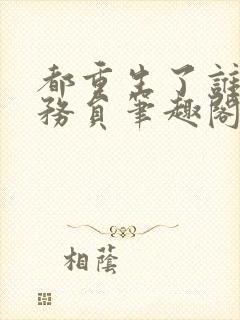 都重生了誰
務員筆趣閣
相蔭